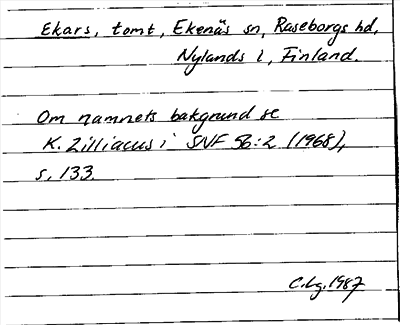 Ekars, tomt, Ekenäs sn, Raseborgs hd,
Nylands l, Finland.
Om namnets bakgrund se
K. Zilliacus i SNF 56:2 (1968),
s. 133.
C.Lg. 1987